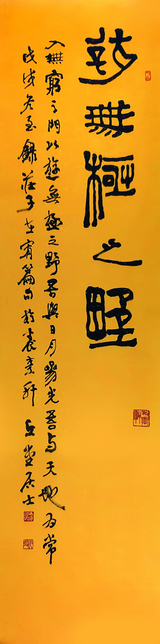 遊無極之野
入無窮之門以遊無極之野吾與日月參光吾與天地為常
戊戌冬至錄莊子在宥篇句於軒居士